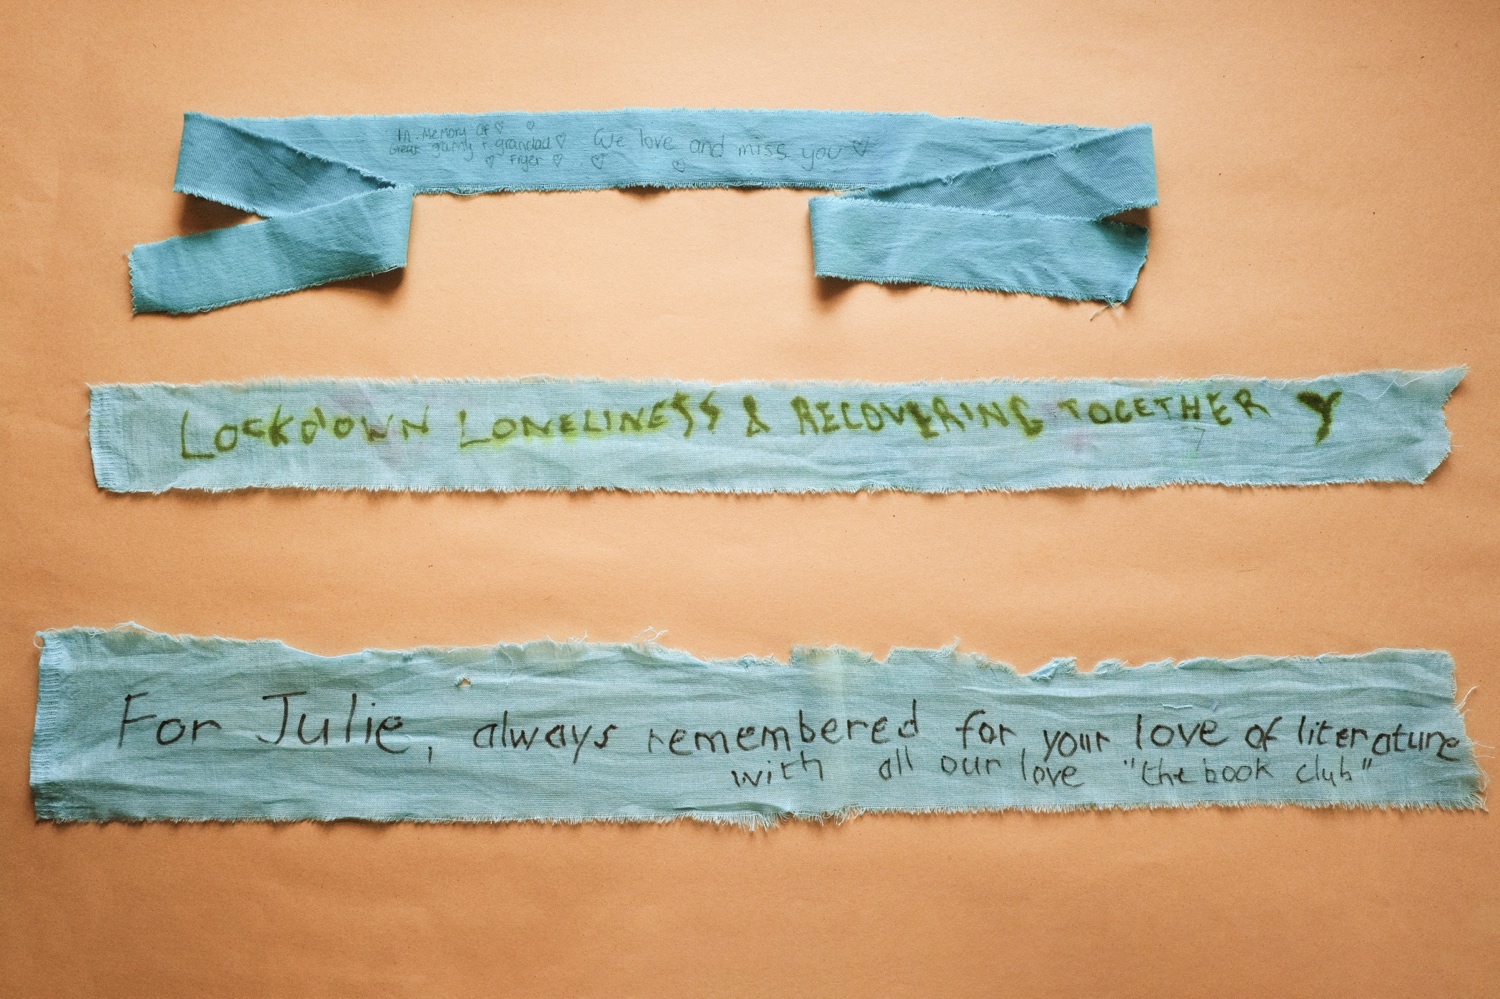 In Memory Of
Great granny + grandad
Fryer
We love and miss you
LOCKDOWN LONELINESS & RECOVERING TOGETHER Y
For Julie, always remembered for your love of literature
with all our love "the book club"